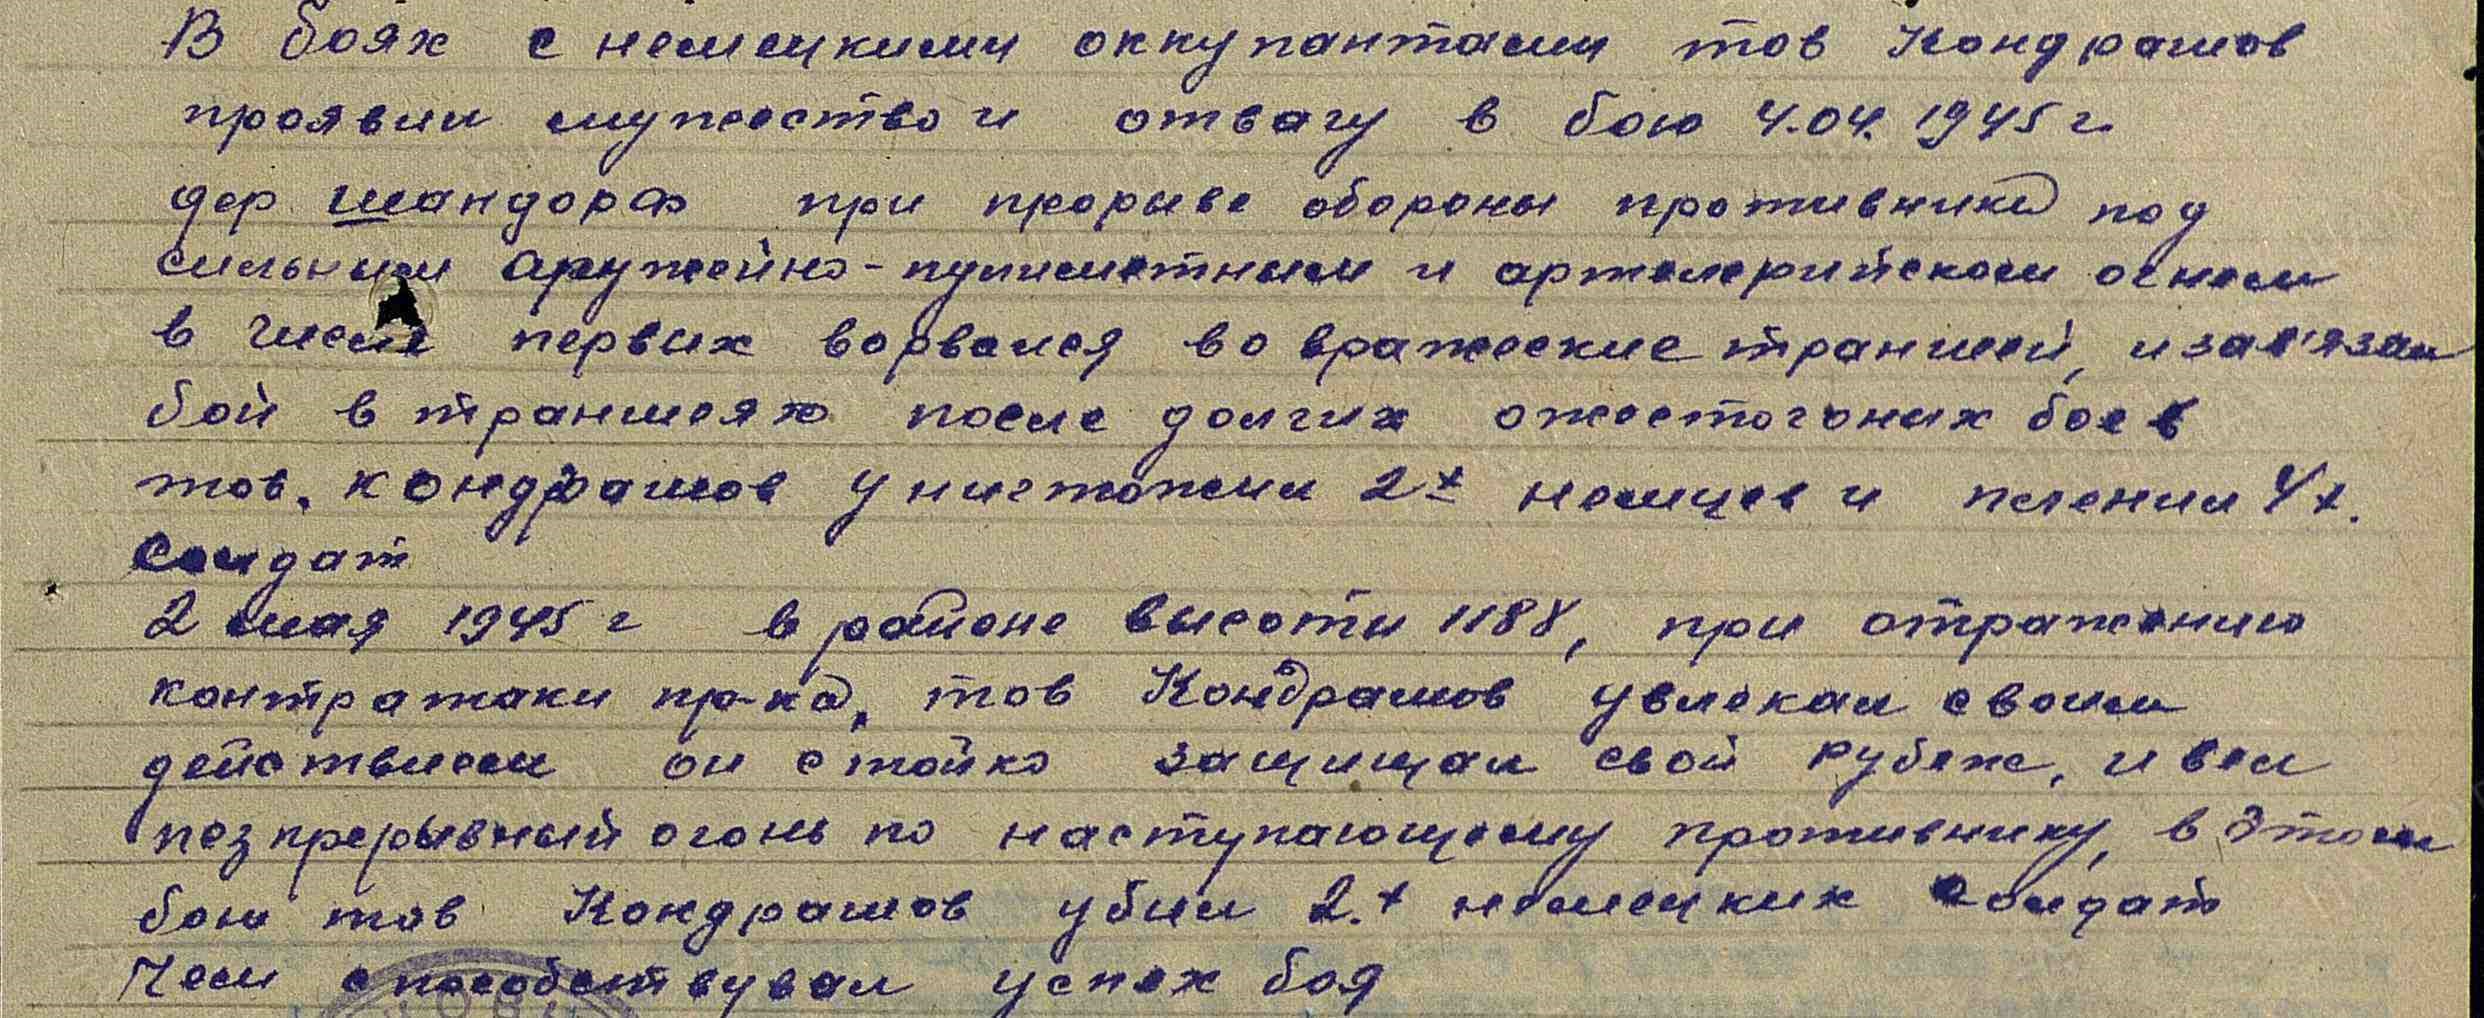 В боях с немецкими оккупантами тов Кондрашов
проявил мужество и отвагу в бою 4.04. 1945 г
дер. Шандорф при прорыве обороны противника под
сильным оружейно-пулиметным и артилерийском огнем
в числе первых ворвался во вражеские траншей, и зав'язал
бой в траншеях после долгих ожесточоных боев
тов. Кондрашов уничтожил 2х немцев и пленил 4х.
Солдат
2 мая 1945 г в районе высоти 1188, при отражению
контратаки пр-ка, тов Кондрашов увлекал своим
действием он стойко защищал свой рубеж, и вел
безпрерывный огонь по наступающему противнику, в этом
бою тов Кондрашов убил 2.х немецких солдат
Чем способствувал успех боя